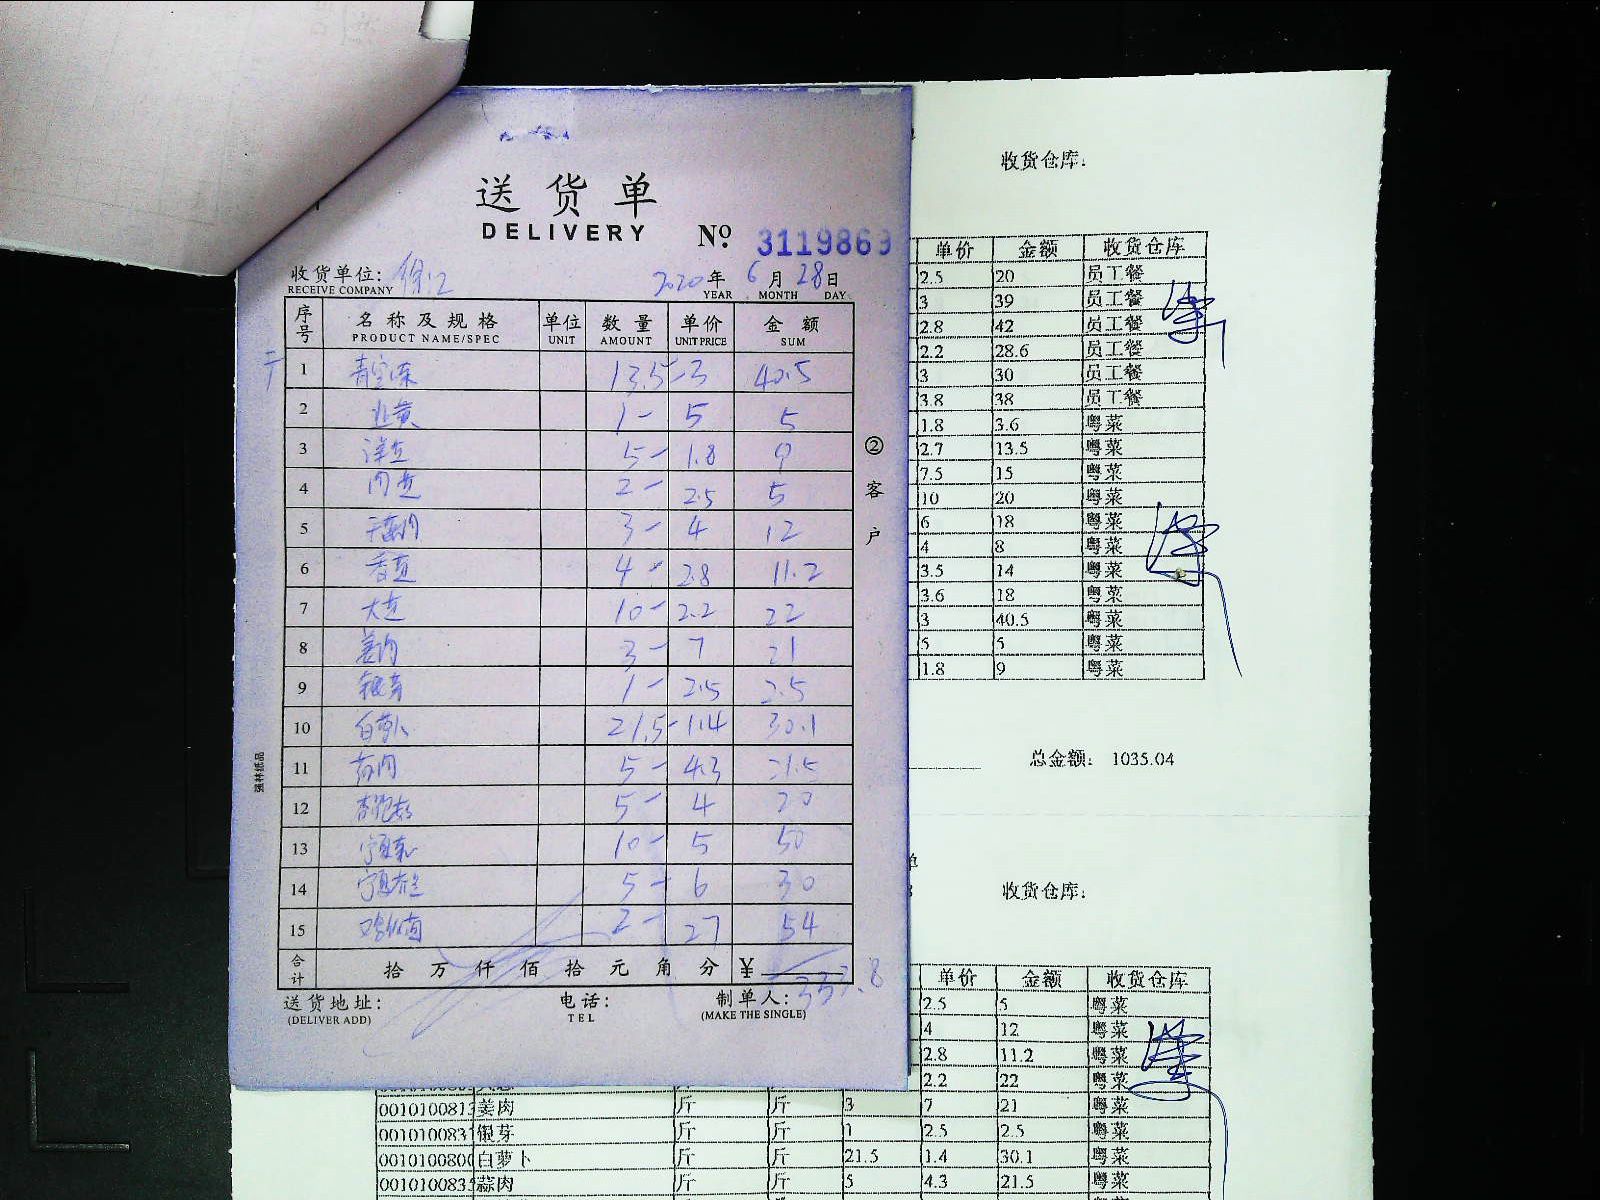 送货单
DELIVERY
№ 3119869
收货单位:
RECEIVE COMPANY
2020年 6月 28日
YEAR MONTH DAY
序号 名称及规格 单位 数量 单价 金额
PRODUCT NAME/SPEC UNIT AMOUNT UNIT PRICE SUM
1 13.5-3 40.5
2 韭黄 1- 5 5
3 洋葱 5- 1.8 9
4 肉葱 2- 2.5 5
5 3- 4 12
6 香葱 4- 2.8 11.2
7 大葱 10- 2.2 22
8 姜肉 3- 7 21
9 银芽 1- 2.5 2.5
10 白萝卜 21.5-1.4 30.1
11 蒜肉 5- 4.3 21.5
12 5- 4 20
13 10- 5 50
14 5- 6 30
15 2- 27 54
合计 拾万仟佰拾元角分 ¥ 333.8
送货地址: 电话: 制单人:
(DELIVER ADD) TEL (MAKE THE SINGLE)
②客户
强林纸品
收货仓库:
单价 金额 收货仓库
2.5 20 员工餐
3 39 员工餐
2.8 42 员工餐
2.2 28.6 员工餐
3 30 员工餐
3.8 38 员工餐
1.8 3.6 粤菜
2.7 13.5 粤菜
7.5 15 粤菜
10 20 粤菜
6 18 粤菜
4 8 粤菜
3.5 14 粤菜
3.6 18 粤菜
3 40.5 粤菜
5 5 粤菜
1.8 9 粤菜
总金额: 1035.04
收货仓库:
单价 金额 收货仓库
2.5 5 粤菜
4 12 粤菜
2.8 11.2 粤菜
2.2 22 粤菜
001010081 姜肉 斤 斤 3 7 21 粤菜
001010083 银芽 斤 斤 1 2.5 2.5 粤菜
001010080 白萝卜 斤 斤 21.5 1.4 30.1 粤菜
001010083 蒜肉 斤 斤 5 4.3 21.5 粤菜